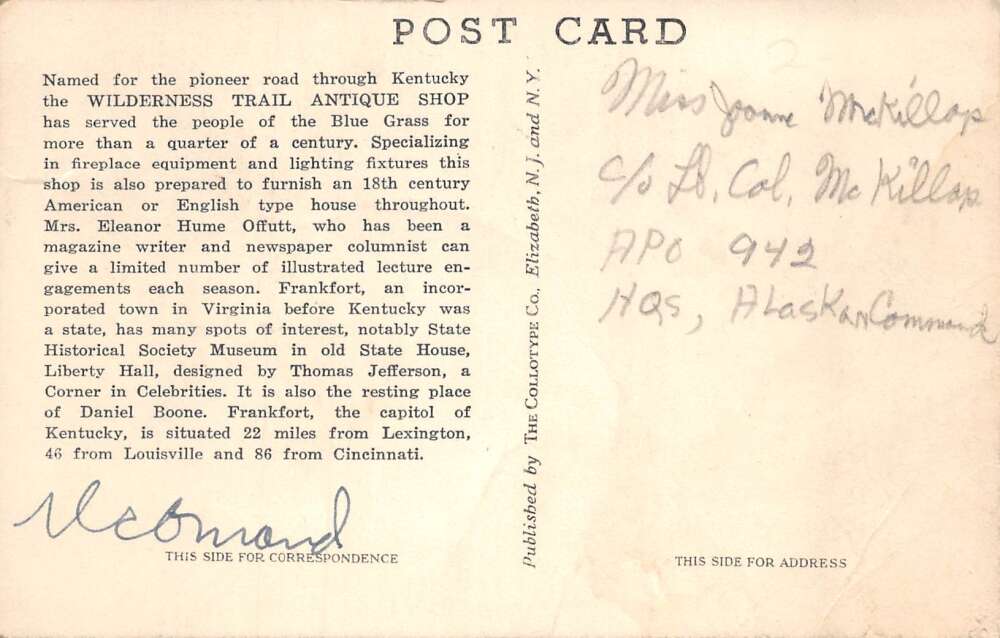 POST CARD
Named for the pioneer road through Kentucky
the WILDERNESS TRAIL ANTIQUE SHOP
has served the people of the Blue Grass for
more than a quarter of a century. Specializing
in fireplace equipment and lighting fixtures this
shop is also prepared to furnish an 18th century
American or English type house throughout.
Mrs. Eleanor Hume Offutt, who has been a
magazine writer and newspaper columnist can
give a limited number of illustrated lecture en-
gagements each season. Frankfort, an incor-
porated town in Virginia before Kentucky was
a state, has many spots of interest, notably State
Historical Society Museum in old State House,
Liberty Hall, designed by Thomas Jefferson, a
Corner in Celebrities. It is also the resting place
of Daniel Boone. Frankfort, the capitol of
Kentucky, is situated 22 miles from Lexington,
46 from Louisville and 86 from Cincinnati.
THIS SIDE FOR CORRESPONDENCE
Published by THE COLLOTYPE CO., Elizabeth, N. J. and N. Y.
Miss Joanne McKillop
c/o Lt. Col. McKillop
APO 942
HQS, Alaskan Command
THIS SIDE FOR ADDRESS